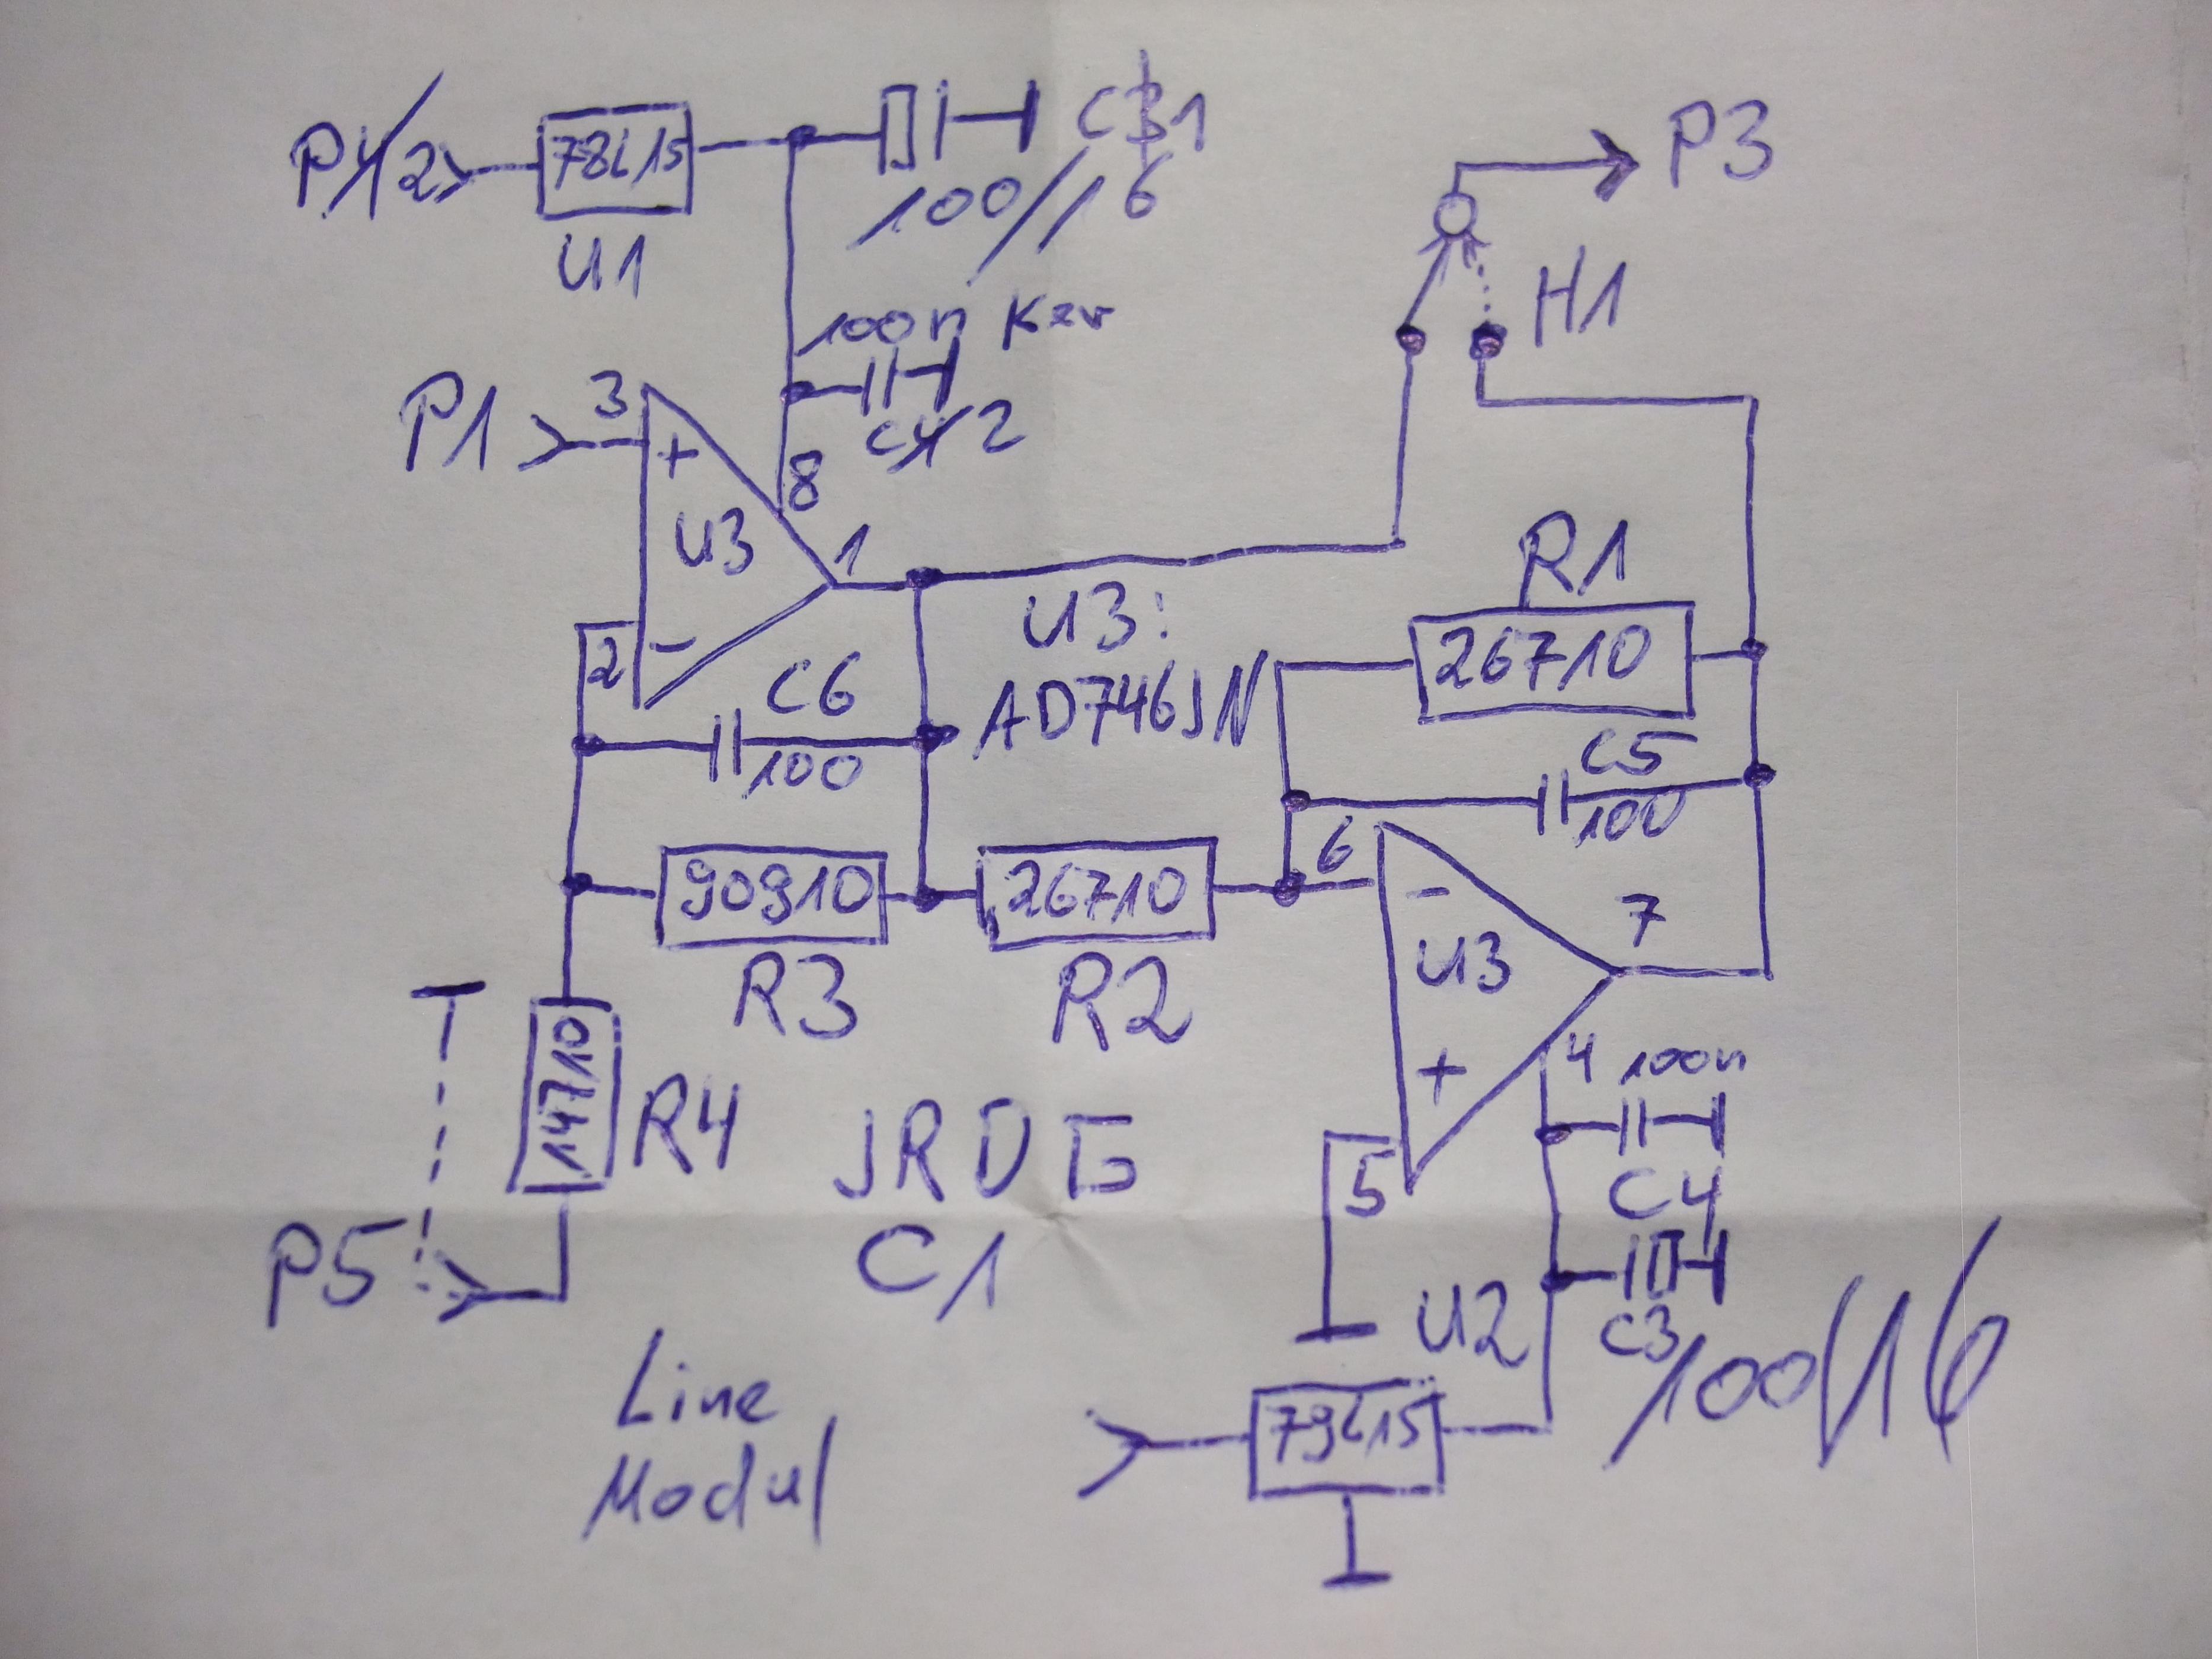 P2
78L15
U1
C1
100/16
P3
H1
100n Ker
C2
P1
3
+
8
U3
1
2
-
C6
100
U3:
AD746JN
R1
26710
C5
100
90910
R3
26710
R2
6
-
U3
7
+
5
4
100n
C4
C3
100/16
14710
R4
JRDG
C1
P5
Line
Modul
U2
79L15